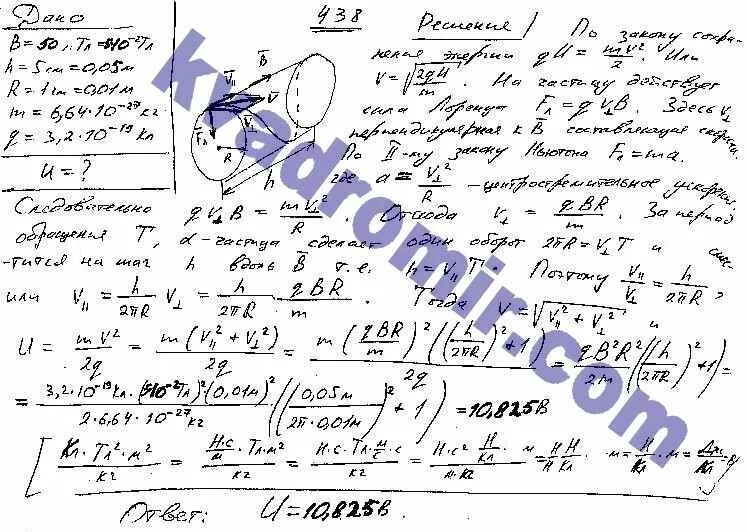 Дано
438
Решение
B = 50 мТл = 5·10⁻² Тл
h = 5 см = 0,05 м
R = 1 см = 0,01 м
m = 6,64·10⁻²⁷ кг
q = 3,2·10⁻¹⁹ Кл
U = ?
V∥ B V V⊥ Fл R h
По закону сохра-
нения энергии qU = mV²/2. Или
V = √(2qU/m). На частицу действует
сила Лоренца Fл = q V⊥B. Здесь V⊥
перпендикулярная к B составляющая скорости.
По II-му закону Ньютона Fл = ma.
где a = V⊥²/R - центростремительное ускорение.
Следовательно q V⊥ B = mV⊥²/R. Отсюда V⊥ = qBR/m. За период
обращения T, α-частица сделает один оборот 2πR = V⊥T и смес-
тится на шаг h вдоль B т.е. h = V∥T. Поэтому V∥/V⊥ = h/2πR,
или V∥ = h/2πR V⊥ = h/2πR · qBR/m. Тогда V = √(V∥² + V⊥²) и
U = mV²/2q = m(V∥² + V⊥²)/2q = m(qBR/m)²((h/2πR)² + 1)/2q = qB²R²/2m((h/2πR)² + 1) =
= 3,2·10⁻¹⁹ Кл·(5·10⁻² Тл)²(0,01 м)²/2·6,64·10⁻²⁷ кг ((0,05 м/2π·0,01 м)² + 1) = 10,825 В
[Кл²·Тл²·м²/кг = Н·с/м·Тл·м²/кг = Н·с·Тл·м/с·с/кг = Н·с² Н/Кл/м·кг · м = Н Н/Н Кл · м = Н/Кл · м = Дж/Кл = В]
Ответ: U = 10,825 В.
kvadromir.com